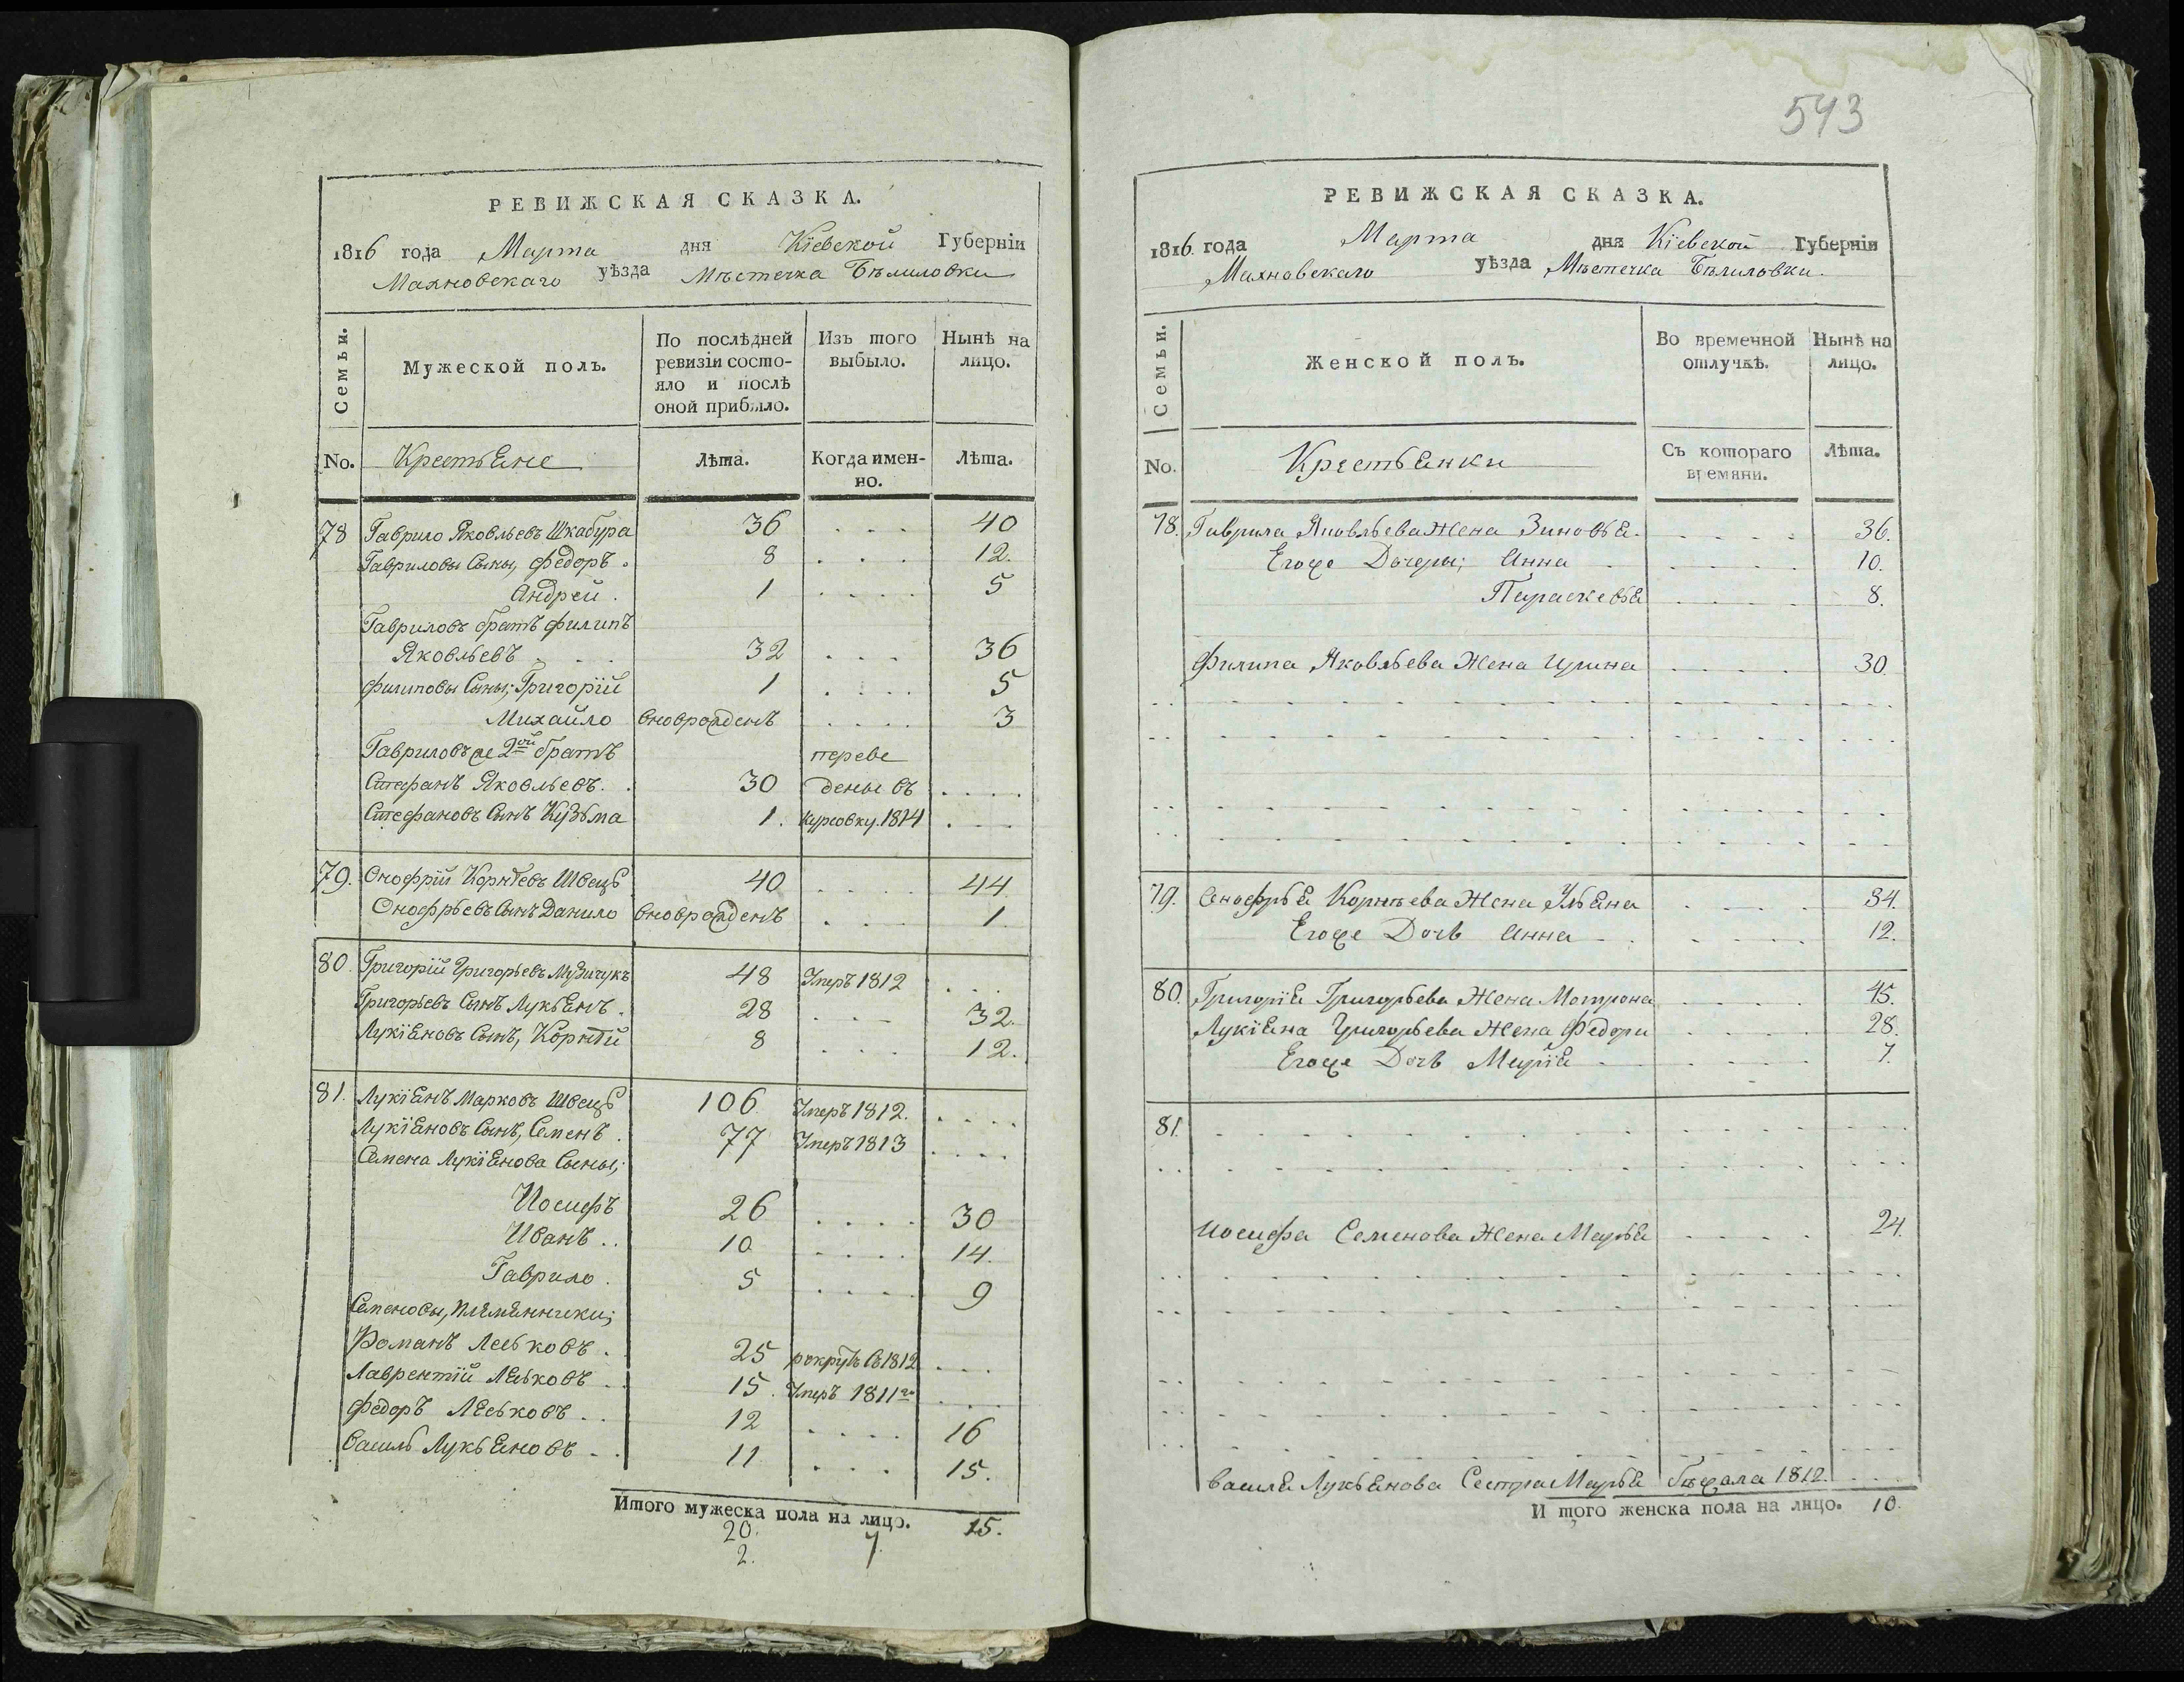 РЕВИЖСКАЯ СКАЗКА.
1816 года Марта дня Кіевской Губерніи
Махновскаго уѣзда Мѣстечка Бѣлиловки
Семьи. Мужеской полъ. По послѣдней ревизіи состо- Изъ того Нынѣ на
яло и послѣ оной прибыло. выбыло. лицо.
No. Крестьяне Лѣта. Когда имен-но. Лѣта.
78 Гаврило Яковльевъ Шкабура 36 . . . 40
Гавриловы Сыны, Федоръ . 8 . . . 12.
Андрей . 1 . . . . 5
Гавриловъ братъ Филипъ
Яковльевъ . . . 32 . . . 36
Филиповы Сыны; Григорій 1 . . . . 5
Михайло вноврожденъ . . . . 3
Гавриловъ же 2ой братъ переве
Стефанъ Яковльевъ. . 30 дены въ . . . .
Стефановъ Сынъ Кузьма 1. 1814 . . .
79. Онофрій Корнѣевъ Швецъ 40 . . . . 44
Онофрьевъ Сынъ Данило вноврожденъ . . . 1.
80. Григорій Григорьевъ Музичукъ 48 Умеръ 1812 . . .
Григорьевъ Сынъ Лукьянъ . 28 . . . 32.
Лукіяновъ Сынъ, Корнѣй 8 . . . . 12.
81. Лукіянъ Марковъ Швецъ 106 Умеръ 1812. . . . .
Лукіяновъ Сынъ, Семенъ . 77 Умеръ 1813 . . . .
Семена Лукіянова Сыны;
Иосифъ 26 . . . . 30
Иванъ . . 10 . . . . 14.
Гаврило . 5 . . . . 9
Семеновы, племянники;
Романъ Леськовъ . 25 рекрутъ въ 1812 . . .
Лаврентій Леськовъ . . 15. Умеръ 1811го . . .
Федоръ Леськовъ . . 12 . . . . 16
Василь Лукьяновъ . . 11 . . . 15.
Итого мужеска пола на лицо. 15.
20. 7.
2.
543
РЕВИЖСКАЯ СКАЗКА.
1816. года Марта дня Кіевской Губерніи
Махновскаго уѣзда Мѣстечка Бѣлиловки.
Семьи. Женской полъ. Во временной отлучкѣ. Нынѣ на лицо.
No. Крестьянки Съ котораго времяни. Лѣта.
78. Гаврила Яковльева Жена Зиновья . . . . . 36.
Егоже Дочери; Анна . . . . . . 10.
Параскевья . . . . 8.
Филипа Яковльева Жена Ирина . . . . 30
79. Онофрья Корнѣева Жена Ульяна . . . . 34.
Егоже Дочь Анна . . . . . 12.
80. Григорія Григорьева Жена Мотрона . . . . 45.
Лукіяна Григорьева Жена Федора . . . . 28.
Егоже Дочь Марія . . . . . 7.
81.
Иосифа Семенова Жена Марья . . . . 24.
Василя Лукьянова Сестра Марья бѣжала 1812. . . . .
И того женска пола на лицо. 10.